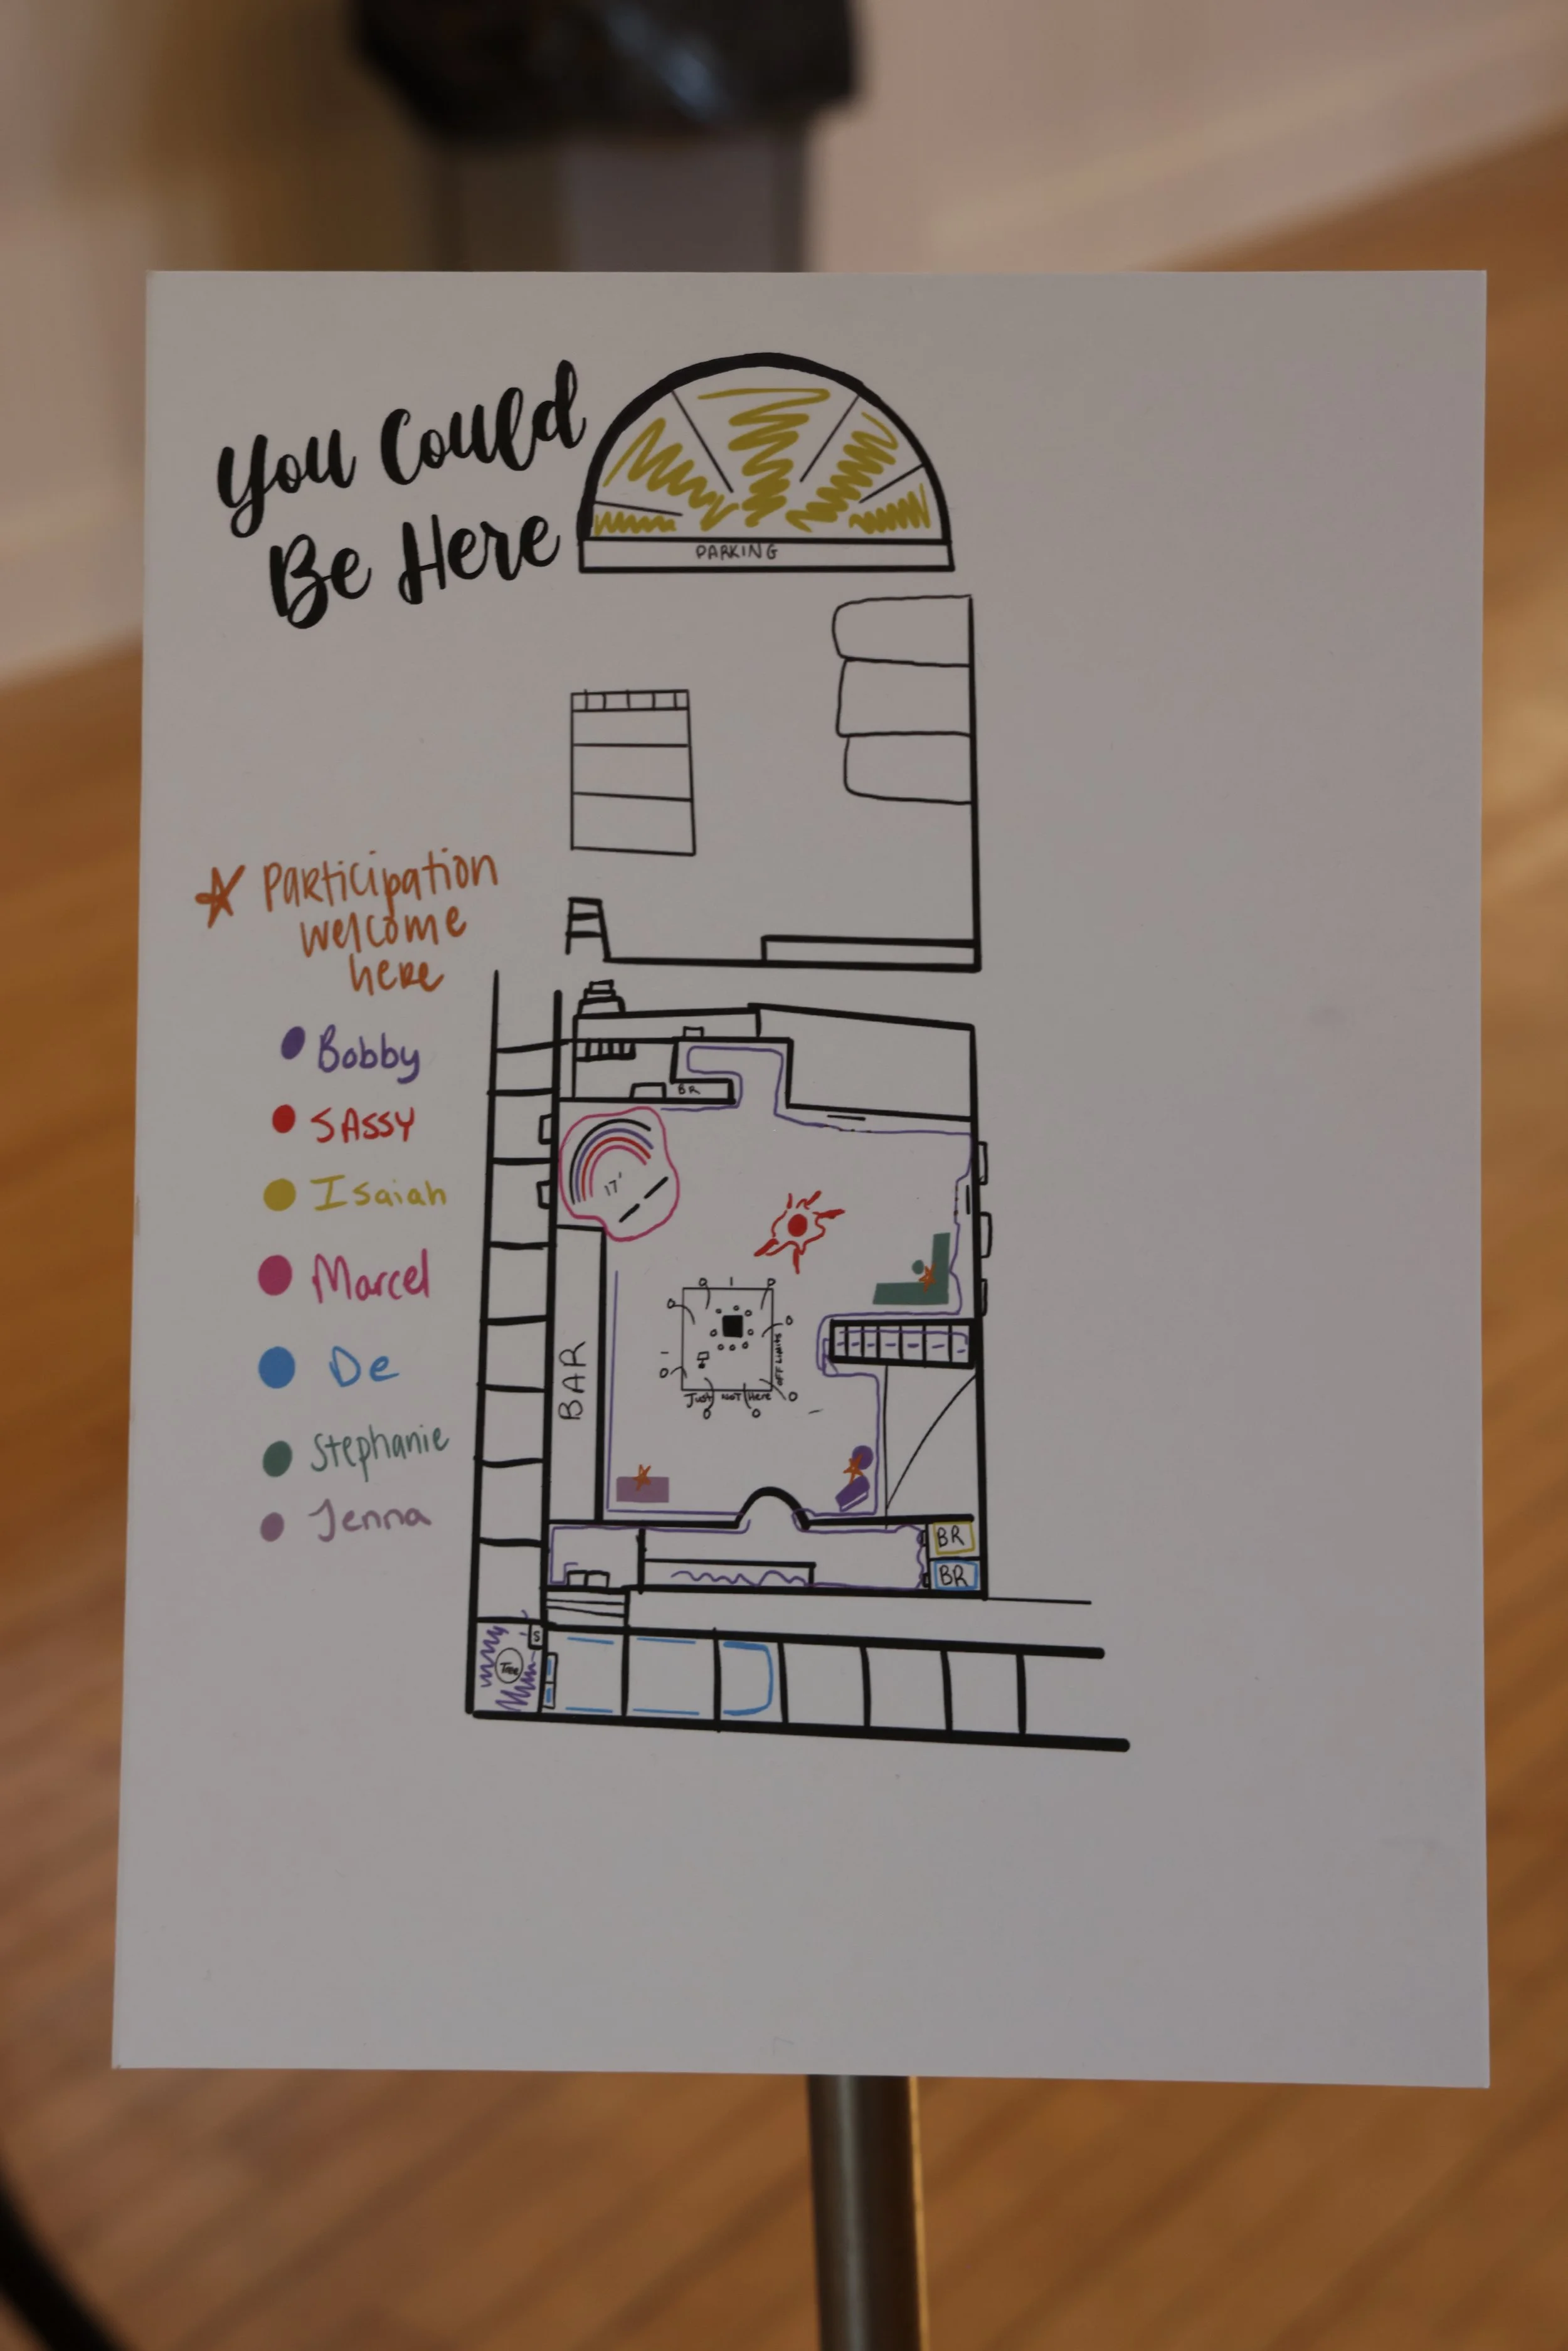 You Could
Be Here
PARKING
Participation
welcome
here
Bobby
SASSY
Isaiah
Marcel
De
Stephanie
Jenna
BR
17'
BAR
OFF LIMITS
Just NOT Here
BR
BR
S
Tree